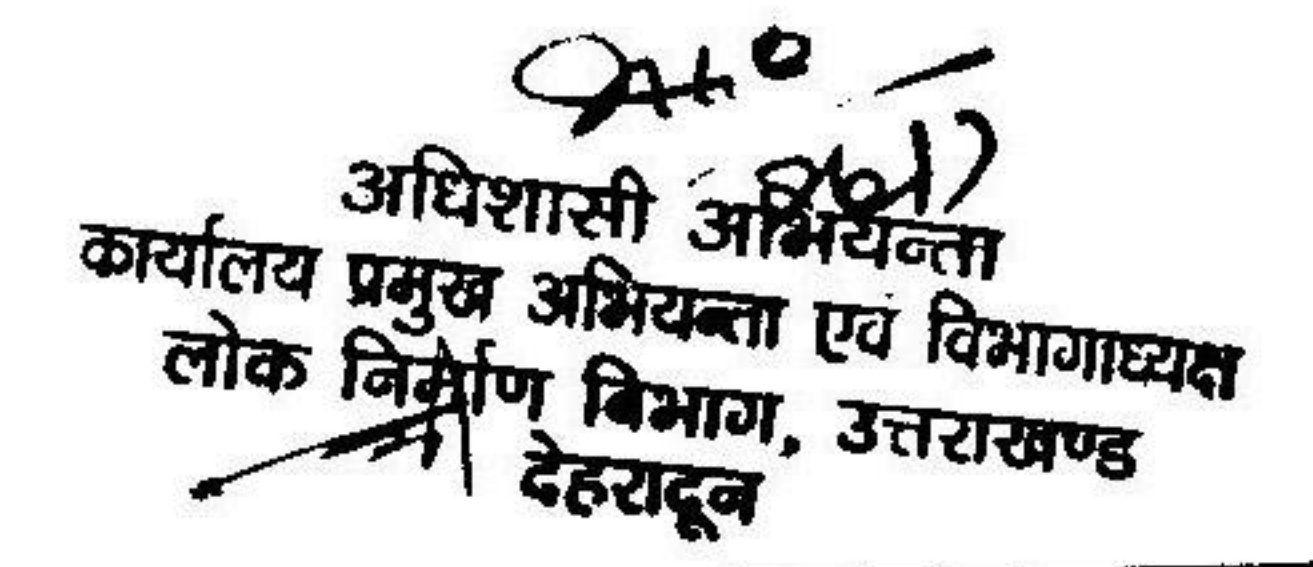 अधिशासी अभियन्ता
कार्यालय प्रमुख अभियन्ता एवं विभागाध्यक्ष
लोक निर्माण विभाग, उत्तराखण्ड
देहरादून